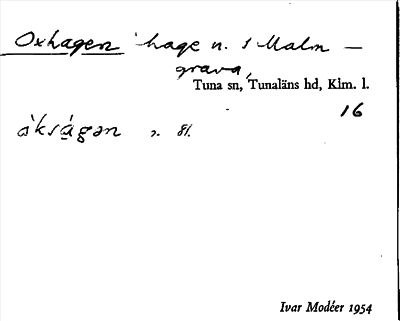 Oxhagen hage n. i Malm-
grava,
Tuna sn, Tunaläns hd, Klm. l.
16
òkságən
Ivar Modéer 1954